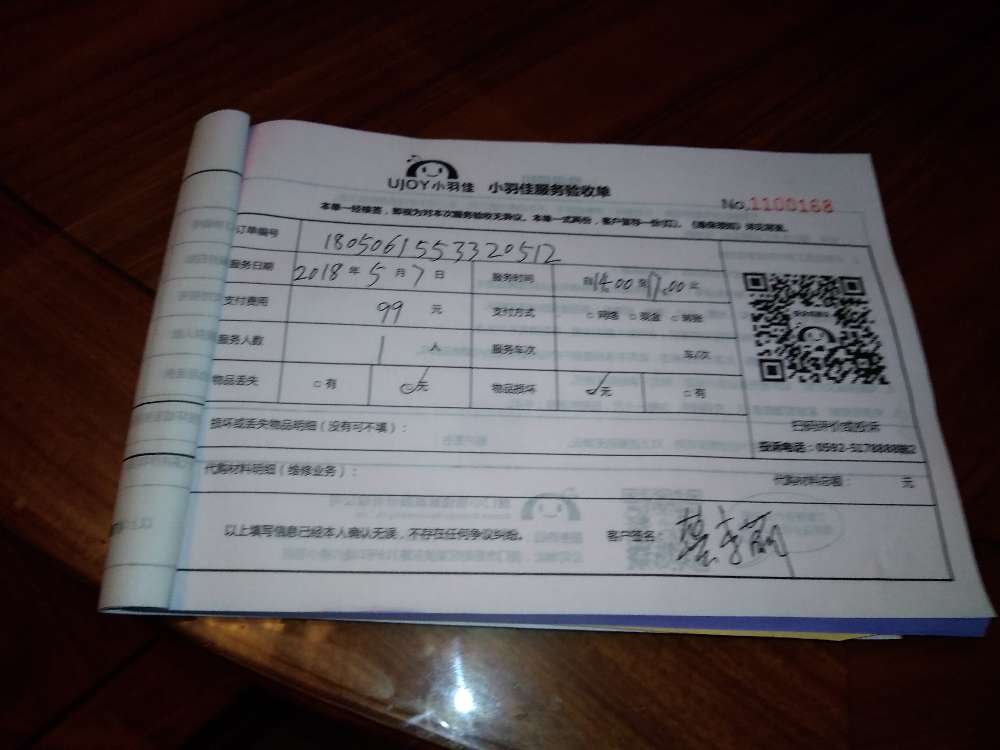 UJOY小羽佳 小羽佳服务验收单
No.1100168
本单一经核签，即视为对本次服务验收无异议。本单一式两份，客户留存一份(红)。
订单编号 1805061553320512
服务日期 2018年5月7日 服务时间 自14:00至17:00止
支付费用 99 元 支付方式 □网络 □现金 □转账
服务人数 1 人 服务车次 车/次
物品丢失 □有 ☑无 物品损坏 ☑无 □有
扫码评价或投诉
损坏或丢失物品明细（没有可不填）：
投诉电话：0592-5178888
代购材料明细（维修业务）： 代购材料总额： 元
以上填写信息已经本人确认无误，不存在任何争议纠纷。 客户签名：